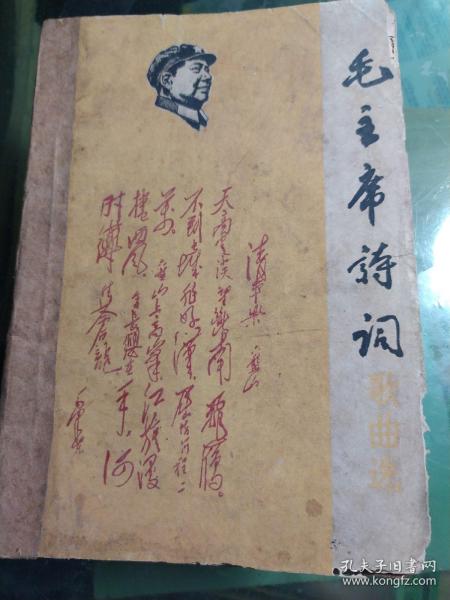 毛主席詩詞
歌曲选
清平樂 六盘山
天高云淡,望断南飛雁。
不到长城非好漢,屈指行程二
万。六盘山上高峯,红旗漫
捲西风。今日長缨在手,何
时缚住蒼龍
毛泽东
孔夫子旧书网
www.kongfz.com